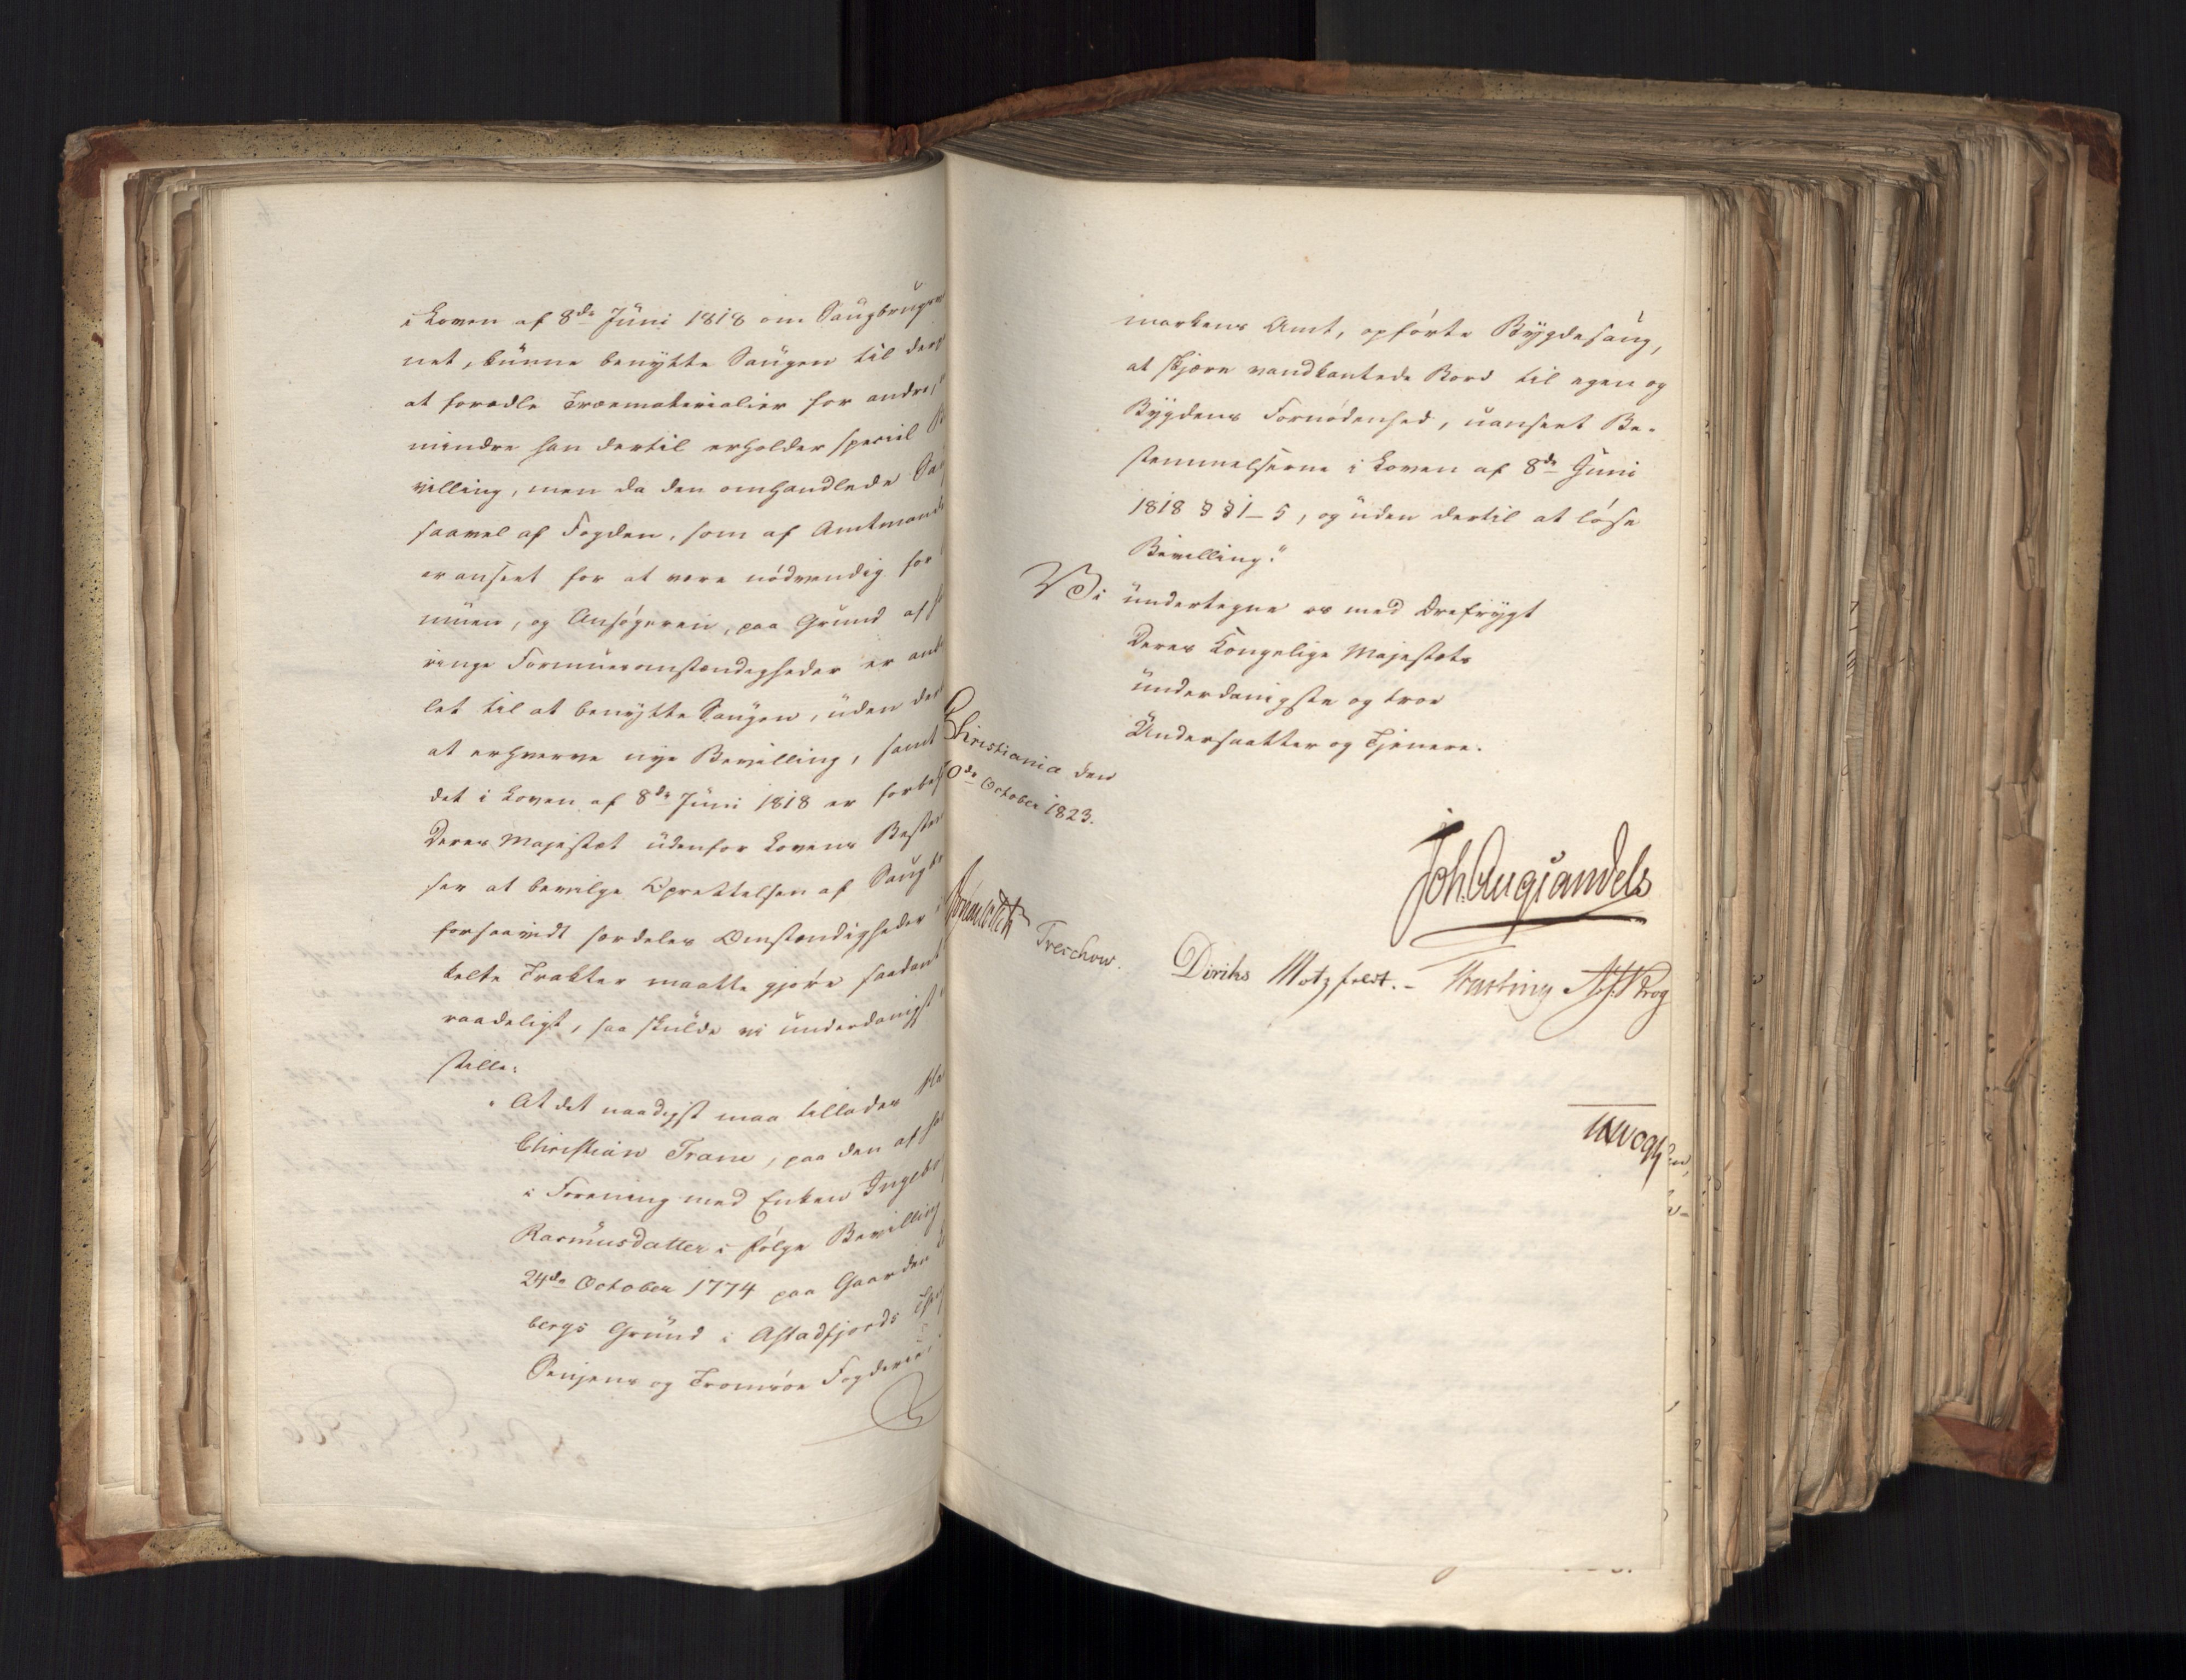 i Loven af 8de Juni 1818 om Saugbrugene
net, kunne benytte Saugen til der
at foradle Træematerialier for andre,
mindre han dertil erholder speciel B
villing, men da den omhandlede Sa
saavel af Fogden, som af Amtmand
er anseet for at være nödvendig for
muen, og Ansøgeren, paa Grund af
ringe Formuesomstændigheder er
let til at benytte Saugen, uden der
at erhverve nye Bevilling, samt
det i Loven af 8de Juni 1818 er forbe
Deres Majestæt udenfor Lovens Bestem
ser at bevilge Oprettelsen af Saugb
forsaavidt særdeles Omstændigheder
kelte Trakter maatte gjøre saadant
raadeligt, saa skulde vi underdanigst
stille:
"At det naadigst maa tillades
Christian Trane, paa den af
i Forening med Enken Ingeb
Rasmusdatter i følge Bevilling
24de October 1774 paa Gaarden
bergs Grund i Astadfjords
Senjens og Tromsöe Fogderie
markens Amt, opførte Bygdesaug,
at skjære vandkantede Bord til egen og
Bygdens Fornødenhed, uanseet Be-
stemmelserne i Loven af 8de Juni
1818 § § 1-5, og uden dertil at løse
Bevilling."
Vi undertegne os med Ærefrygt
Deres Kongelige Majestæts
underdanigste og troe
Undersaatter og Tjenere.
Christiania den
0de October 1823.
Joh. Aug. Sandels
Treschow. Diriks Motzfeldt. - Fasting Krog